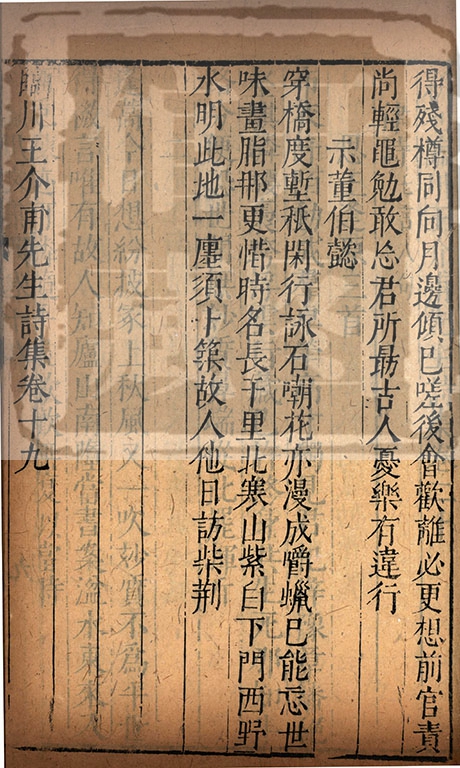 得殘樽同向月邊傾已嗟後會歡離必更想前官責
尚輕黽勉敢忘君所勗古人憂樂有違行
示董伯懿
穿橋度塹秖閑行詠石嘲花亦漫成嚼蠟已能忘世
味畫脂那更惜時名長干里北寒山紫白下門西野
水明此地一廛須卜築故人他日訪柴荆
臨川王介甫先生詩集卷十九